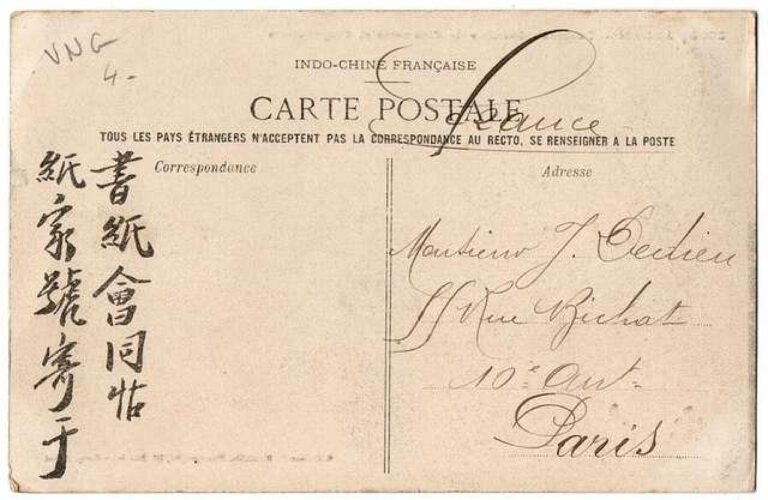 VNG
4-
INDO-CHINE FRANÇAISE
CARTE POSTALE
France
TOUS LES PAYS ÉTRANGERS N'ACCEPTENT PAS LA CORRESPONDANCE AU RECTO, SE RENSEIGNER A LA POSTE
Correspondance
Adresse
書紙會同帖
紙家號寄于
Monsieur J. Dedieu
55 Rue Bichat
10e Arrt.
Paris